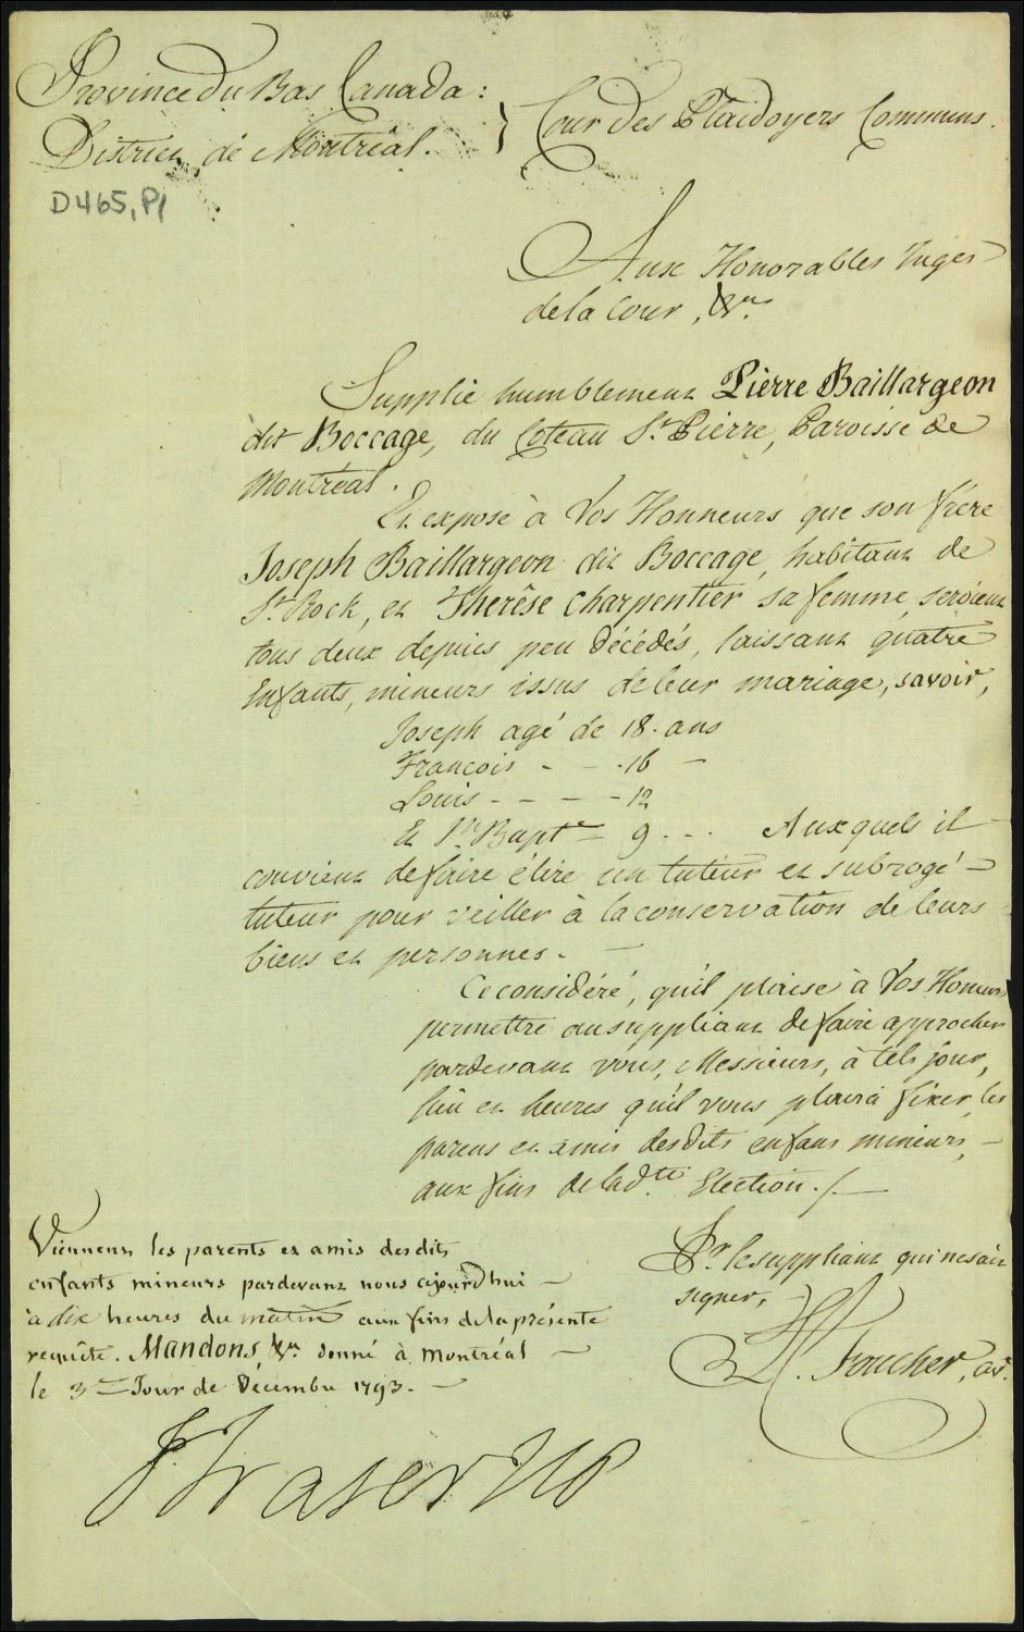 Province du Bas Canada :
District de Montréal. } Cour des Plaidoyers Communs.
D465, P1
Aux Honorables Juges
de la Cour, &ca.
Supplie humblement Pierre Baillargeon
dit Boccage, du Coteau St. Pierre, Paroisse de
Montréal.
Et expose à Vos Honneurs que son frère
Joseph Baillargeon dit Boccage, habitant de
St. Rock, et Therêse Charpentier sa femme, seroient
tous deux depuis peu décédés, laissant quatre
Enfants, mineurs issus de leur mariage, savoir,
Joseph agé de 18. ans
Francois - - - 16 -
Louis - - - - 12
Et Jn. Bapte - 9 - - . Auxquels il
convient de faire élire un tuteur et subrogé -
tuteur pour veiller à la conservation de leurs
biens et personnes. -
Ce considéré, qu'il plaise à Vos Honneurs
permettre au suppliant de faire approcher
pardevant vous, Messieurs, à tels jour,
lieu et heures qu'il vous plaira fixer, les
parens et amis desdits enfans mineurs, -
aux fins de ladte. Election ./. -
Pr. le suppliant qui ne sait
signer, -
L. Foucher, av.
Viennent les parents et amis desdits
enfants mineurs pardevant nous aujourd'hui -
à dix heures du matin aux fins de la présente
requête. Mandons, &ca. donné à Montréal -
le 3me Jour de Decembre 1793. -
J Fraser JCP